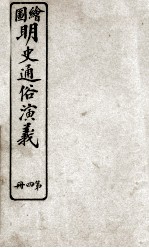 繪圖
明史通俗演義
第四冊